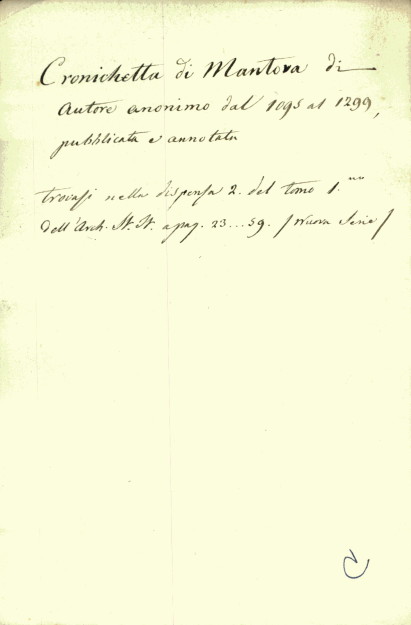 Cronichetta di Mantova di
autore anonimo dal 1095 al 1299,
pubblicata e annotata
trovasi nella dispensa 2.ª del tomo 1.mo
dell'Arch. St. It. a pag. 23...59. / Nuova Serie /